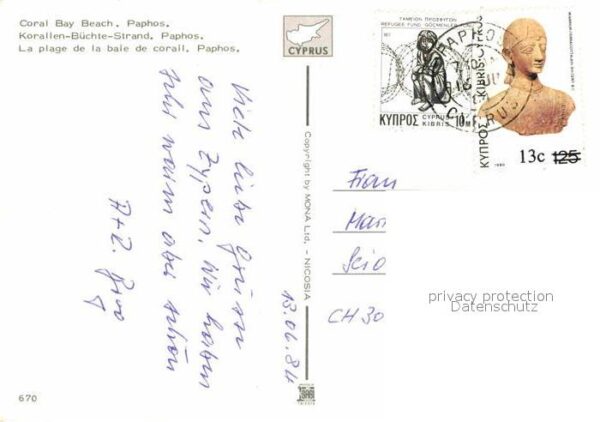 Coral Bay Beach, Paphos.
Korallen-Büchte-Strand, Paphos.
La plage de la baie de corail, Paphos.
CYPRUS
Copyright by MONA Ltd. - NICOSIA
670
Viele liebe Grüsse
aus Zypern. Wir haben
sehr warm aber schön
13.06.84
CH 30
ΤΑΜΕΙΟΝ ΠΡΟΣΦΥΓΩΝ
REFUGEE FUND GÖÇMENLER
CYPRUS
KIBRIS
10M
ΚΥΠΡΟΣ
ΚΥΠΡΟΣ KIBRIS CYPRUS
13c 125
privacy protection
Datenschutz